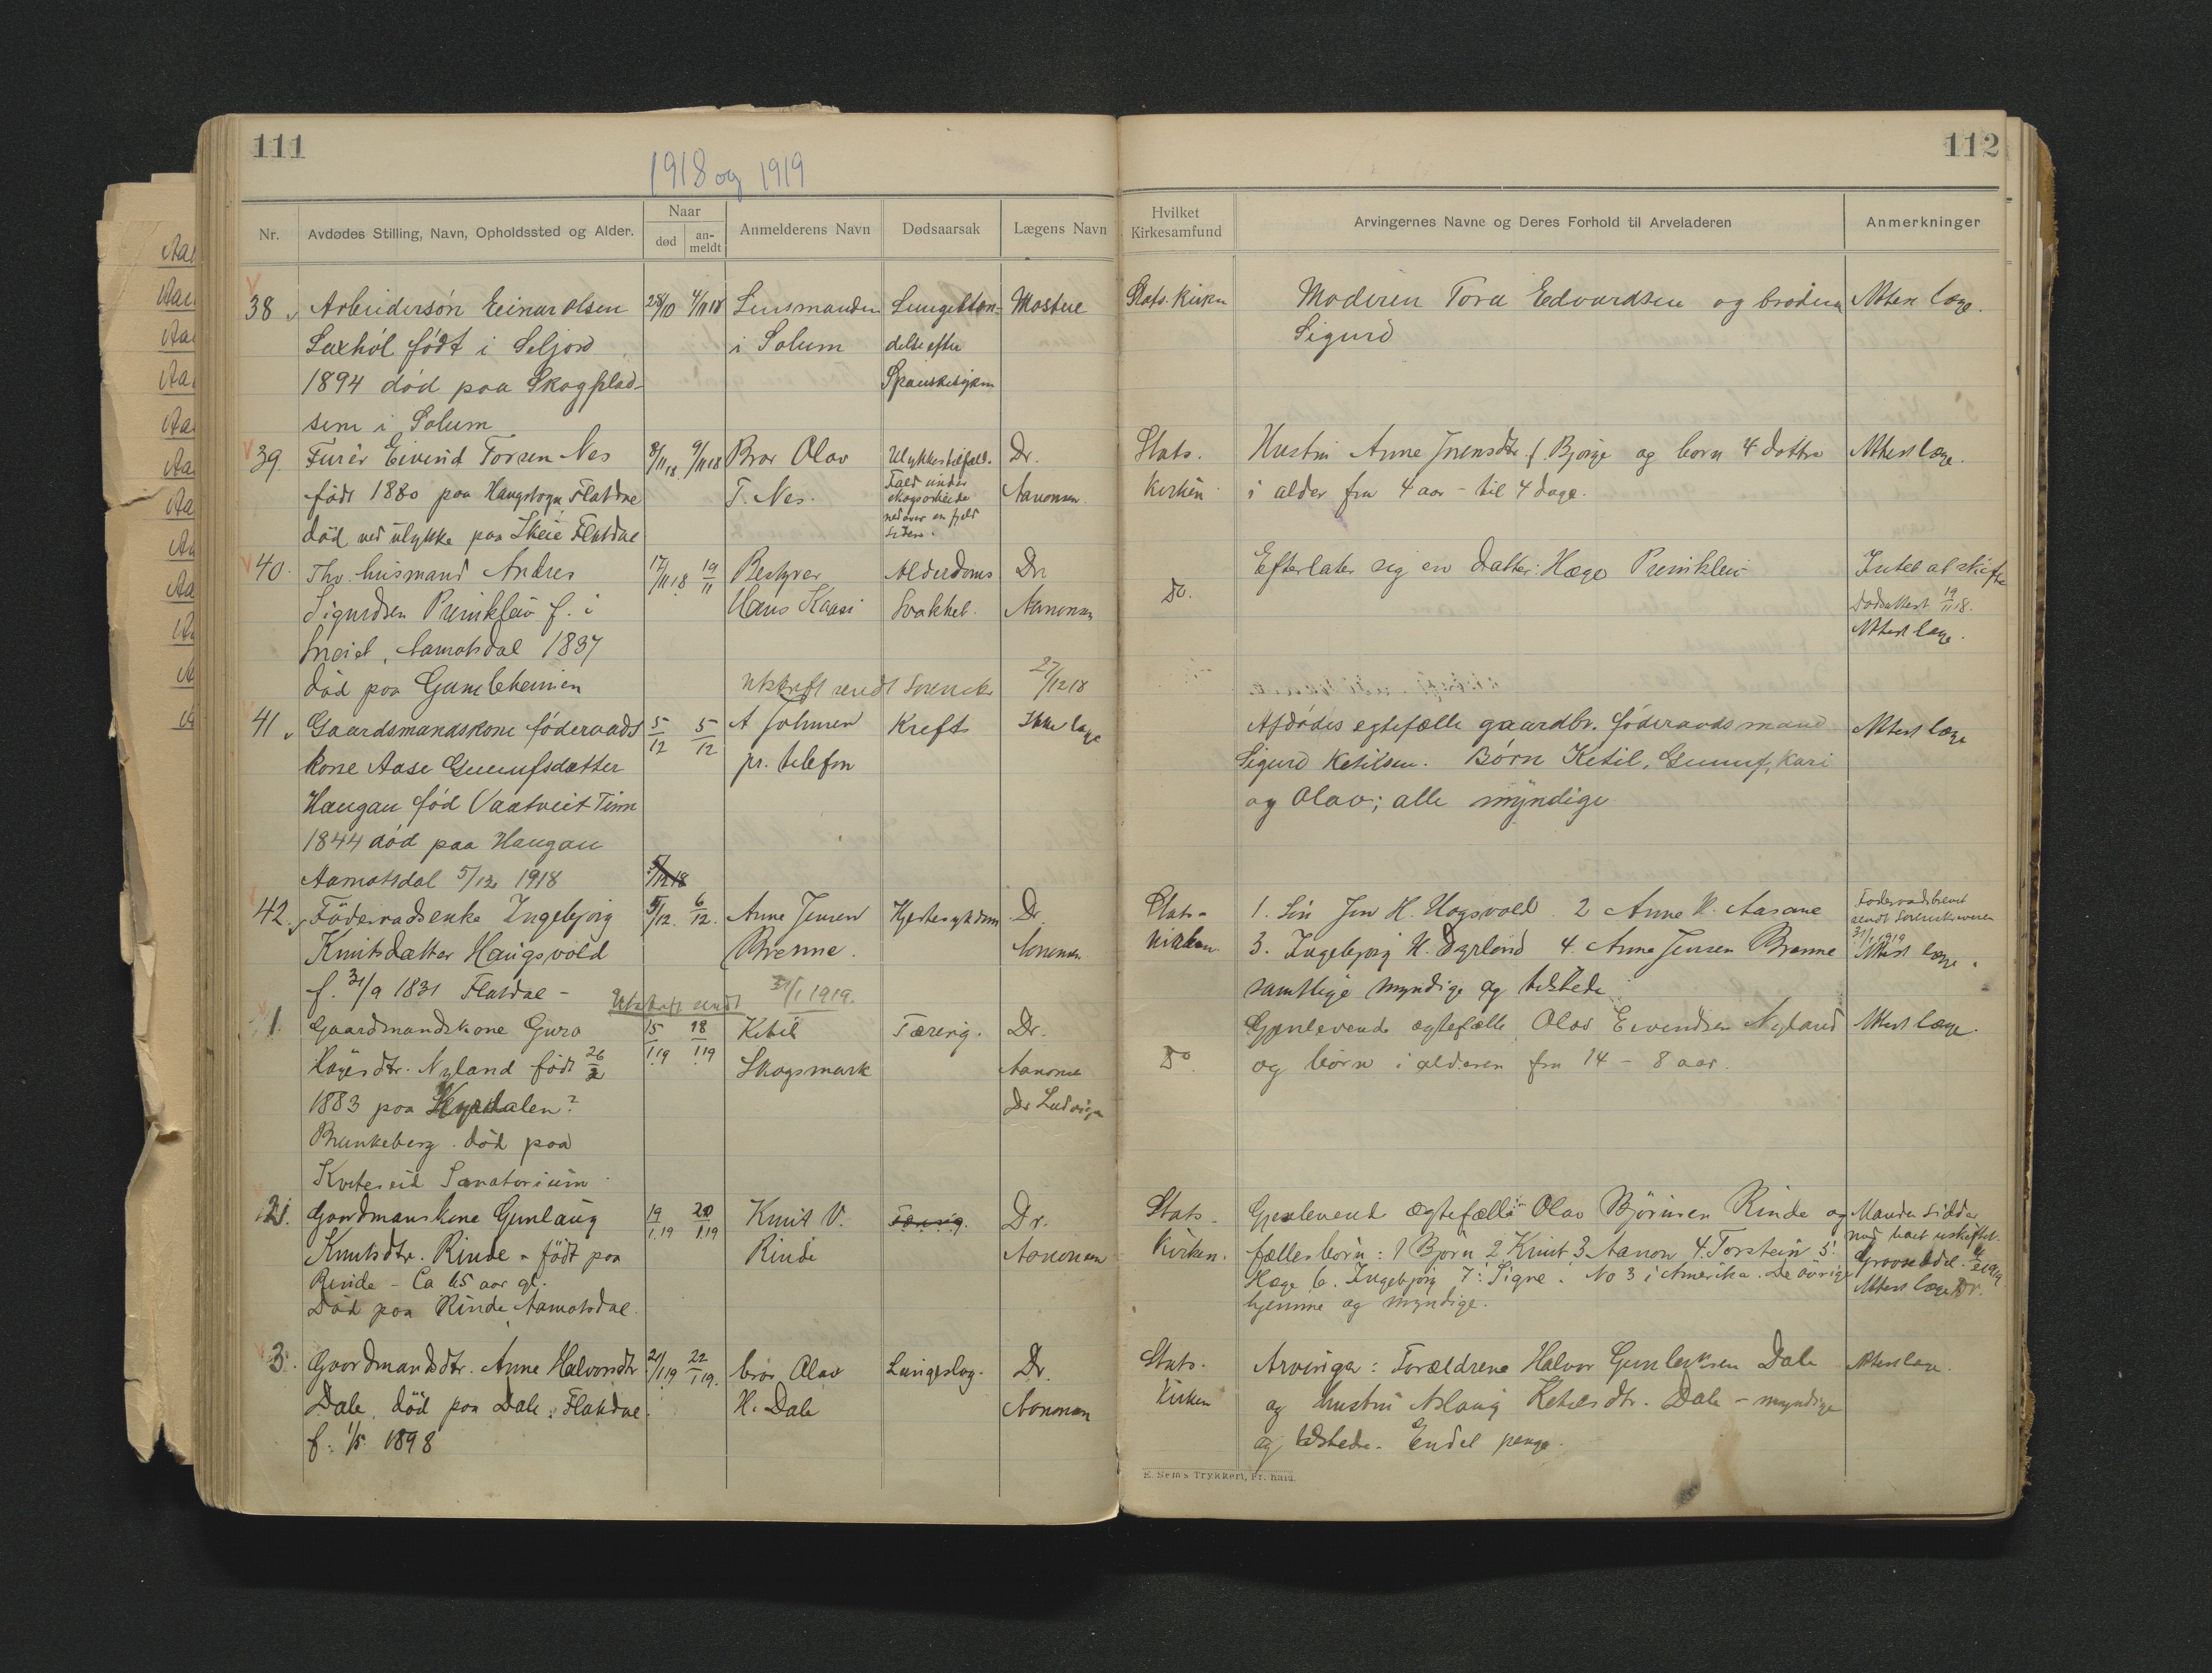 111
112
1918 og 1919
Nr.
Avdødes Stilling, Navn, Opholdssted og Alder.
Naar
død
an-
meldt
Anmelderens Navn
Dødsaarsak
Lægens Navn
Hvilket
Kirkesamfund
Arvingernes Navne og Deres Forhold til Arveladeren
Anmerkninger
38 Arbeidersøn Einar Olsen 28/10 4/11 18 Lensmanden Lungebtæn- Mostue Stats. kirken Moderen Tora Edvardsen og broderen Attest læge.
Laxhól født i Seljord i Solum delse efter Sigurd
1894 død paa Skogplad- Spanskesyken
sen i Solum
39. Furér Eivind Torsen Nes 8/11 18 9/11 18 Bror Olav Ulykkestilfælde. Dr. Stats. Hustru Anne Jensdtr f. Bjørge og born 4 dottre Attest læge.
født 1880 paa Flatdal T. Nes. Fald under skogsarbeide Aanonsen. Kirken i alder fra 4 aar - til 4 dage.
død ved ulykke paa Skeie Flatdal nedover en fjeld
40. Thv. husmand Andres 17/11 18 19/11 Bestyrer Alderdoms Dr. Do. Efterlater sig en datter: Hæge Intet at skifte
Sigurdsen f. i Hans Kaasi Svakhet. Aanonsen Dødsattest 19/11 18.
Aamotsdal 1837 Attest læge.
død paa Gamleheimen Utskrift sendt Sorensk. 27/12 18
41 Gaardsmandskone föderaads 5/12 5/12 A Johnsen Kreft Ikke læge Afdødes egtefælle gaardbr. föderaadsmand Attest læge
kone Aase Gunnufsdatter pr. telefon Sigurd Ketilsen. Børn Ketil, Gunnuf, Kari
Haugan fød Vaatveit Tinn og Olav; alle myndige
1844 død paa Haugan
Aamotsdal 5/12 1918 5/12 18
42. Föderaadsenke Ingebjorg 5/12. 6/12. Anne Jensen Hjertesykdom Dr. Stats- 1. Sön Jon H. Hogsvold. 2 Anne H. Aasane Foderaadsbrevet
Knutsdatter Haugsvold Brenne. Kirken 3. Ingebjorg H. Dyrland 4. Anne Jensen Brenne sendt Sorenskriveren 31/1 1919
f. 31/9 1831 Flatdal - samtlige myndige og tilstede Attest læge.
Utskrift sendt 31/1 1919.
1. Gaardmandskone Guro 15/1 19 18/1 19 Ketil Tæring. Dr. Do Gjenlevende ægtefælle Olav Eivindsen Nyland Attest læge.
dtr. Nyland födt 26/2 Skogsmark Aanonsen og børn i alderen fra 14 - 8 aar.
1883 paa Dr Ludvigsen
Brunkeberg. død paa
Kviteseid Sanatorium
2. Gaardmanskone Gunlaug 19/1 19 20/1 19 Knut V. Tæring. Dr. Stats- Gjenlevende ægtefælle Olav Björnsen Rinde og Manden sidder
Knutsdtr. Rinde - födt paa Rinde Aanonsen Kirken. fælles born: 1 Bjorn 2 Knut 3 Aanon 4. Torstein 5:
Rinde - Ca 65 aar gl. Hæge 6. Ingebjorg 7: Signe. No 3 i Amerika. De övrige Attest læge Dr.
Död paa Rinde, Aamotsdal. hjemme og myndige.
3. Gaardmandsdtr. Anne Halvorsdtr 21/1 19 22/1 19. bror Olav Lungeslag. Dr. Stats- Arvinger: Forældrene Halvor Gunleiksen Dale Attest læge.
Dale, död paa Dale, Flatdal. H. Dale Aanonsen Kirken og hustru Aslaug Ketilsdtr. Dale - myndige
f. 1/5 1898 og tilstede. Endel penge.
E. Sem's Trykkeri, Fr. hald.